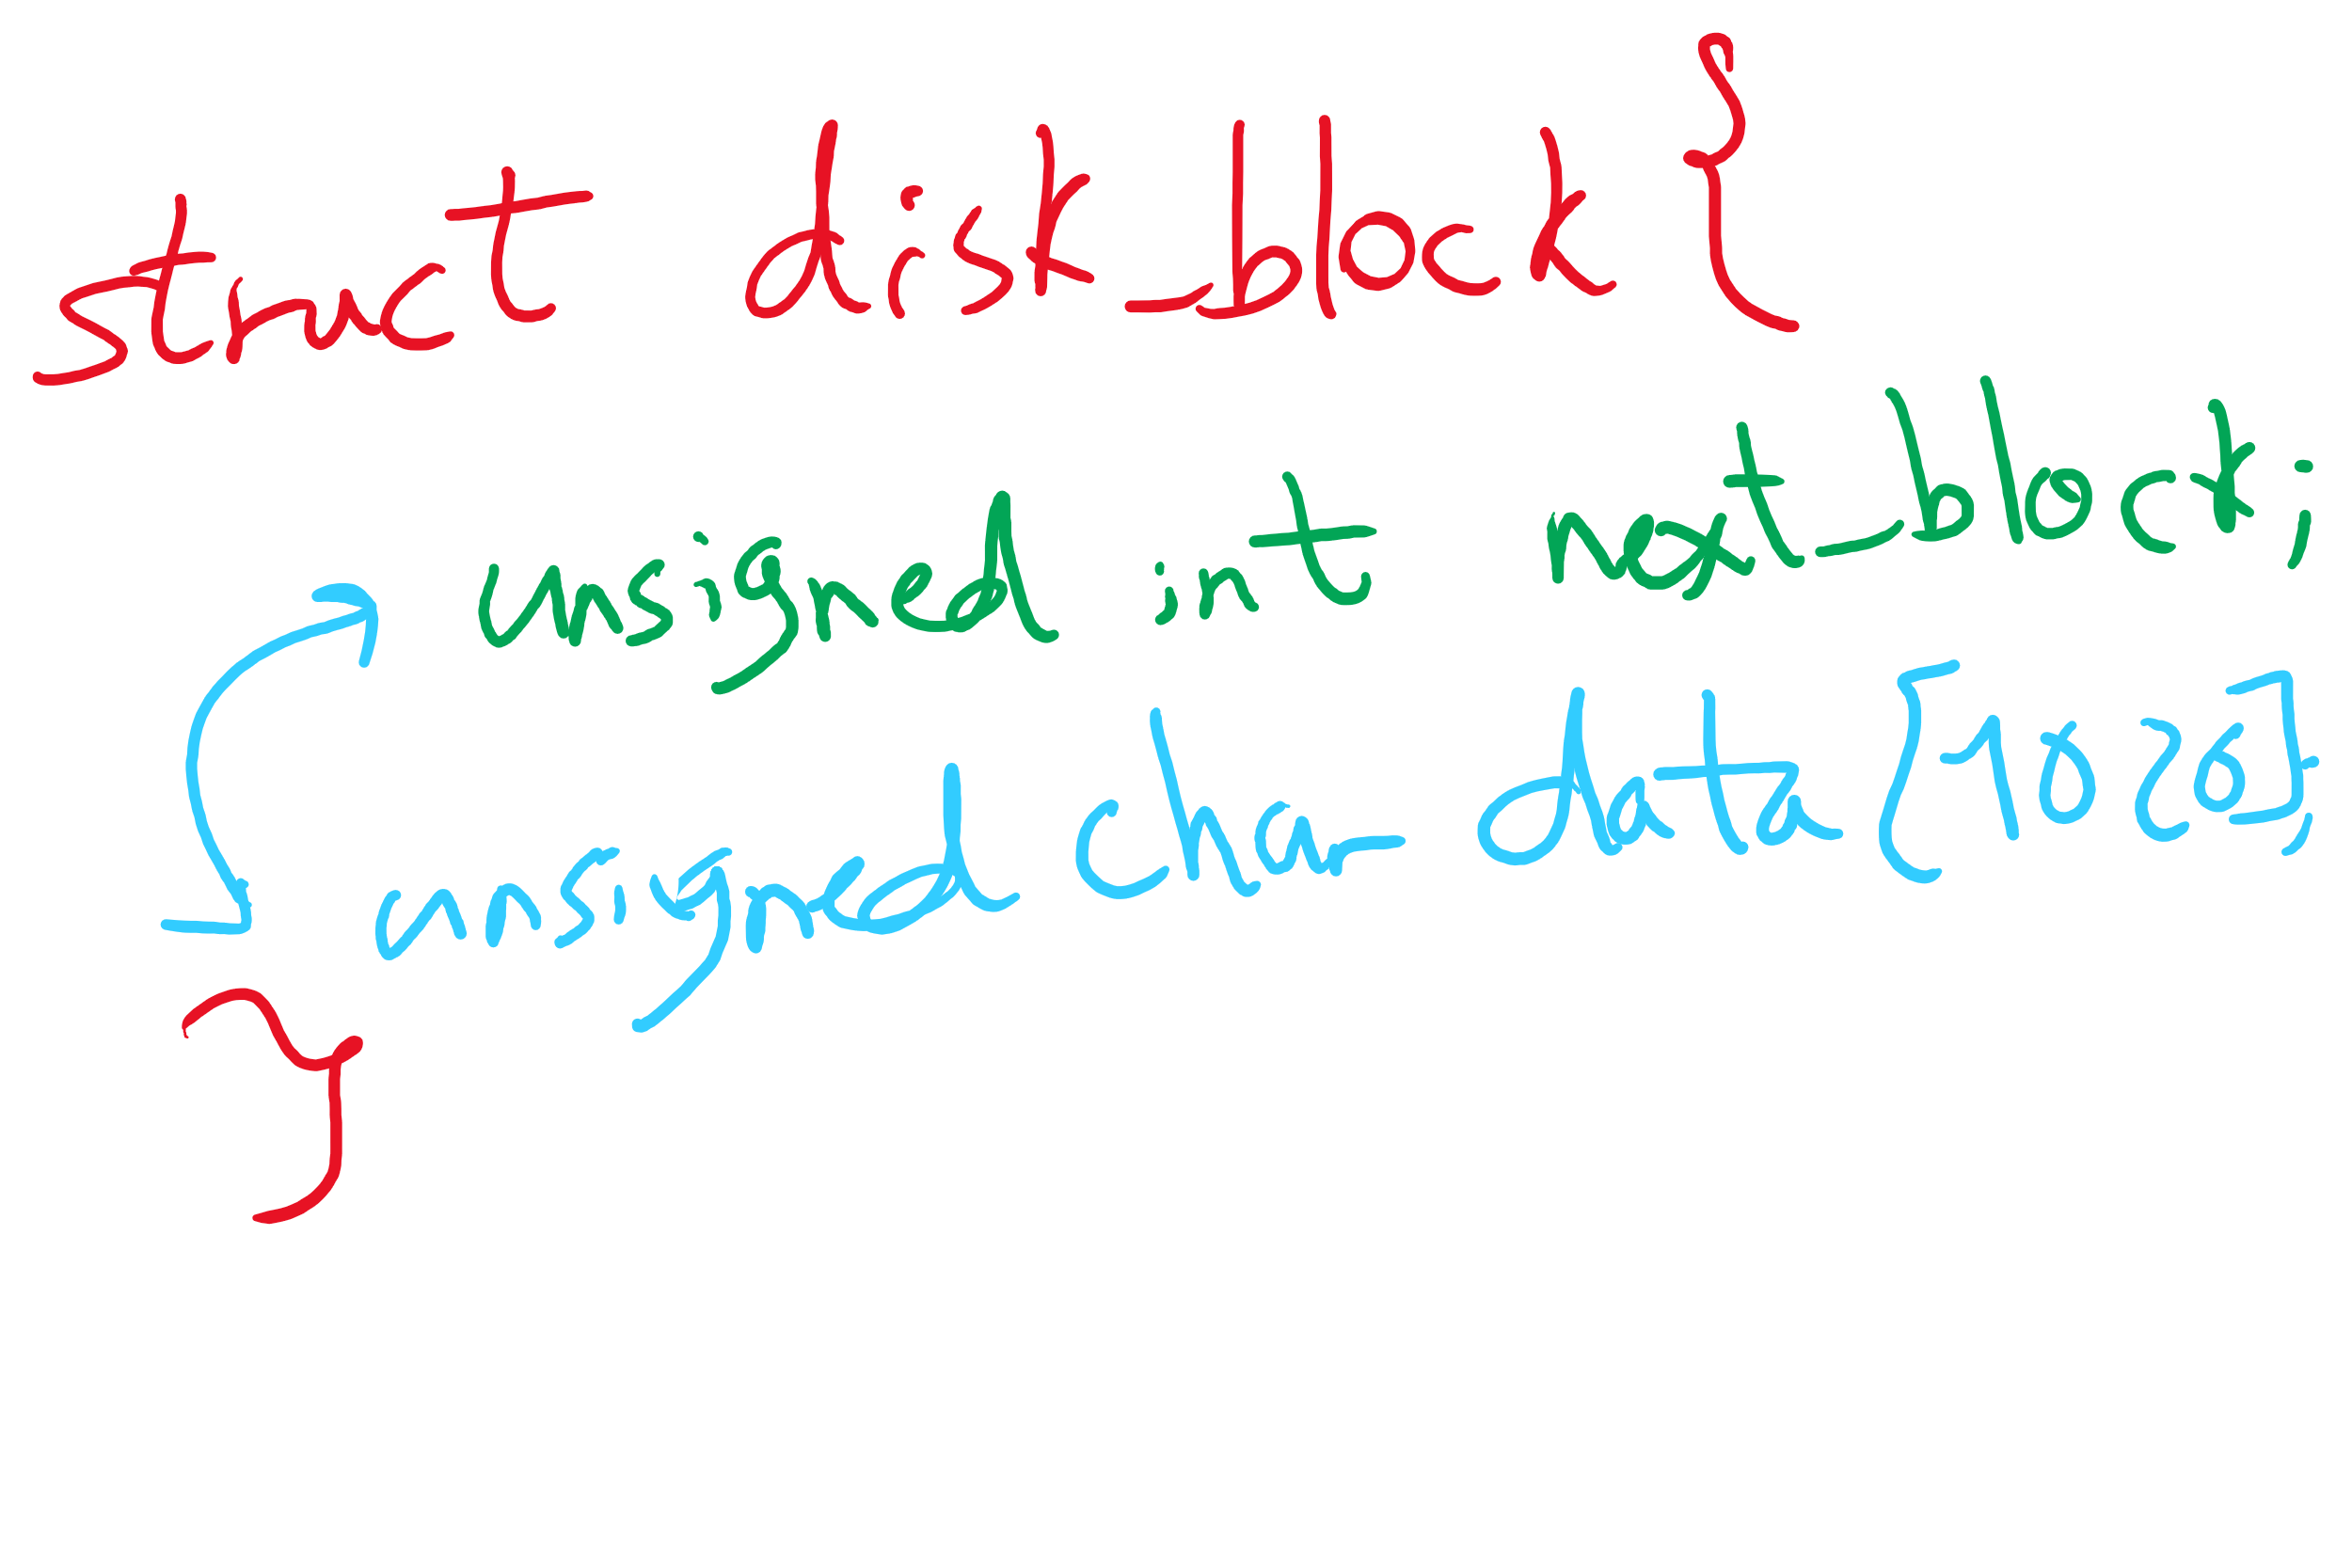 struct disk_block {
unsigned int next_block;
unsigned char data[1028];
}